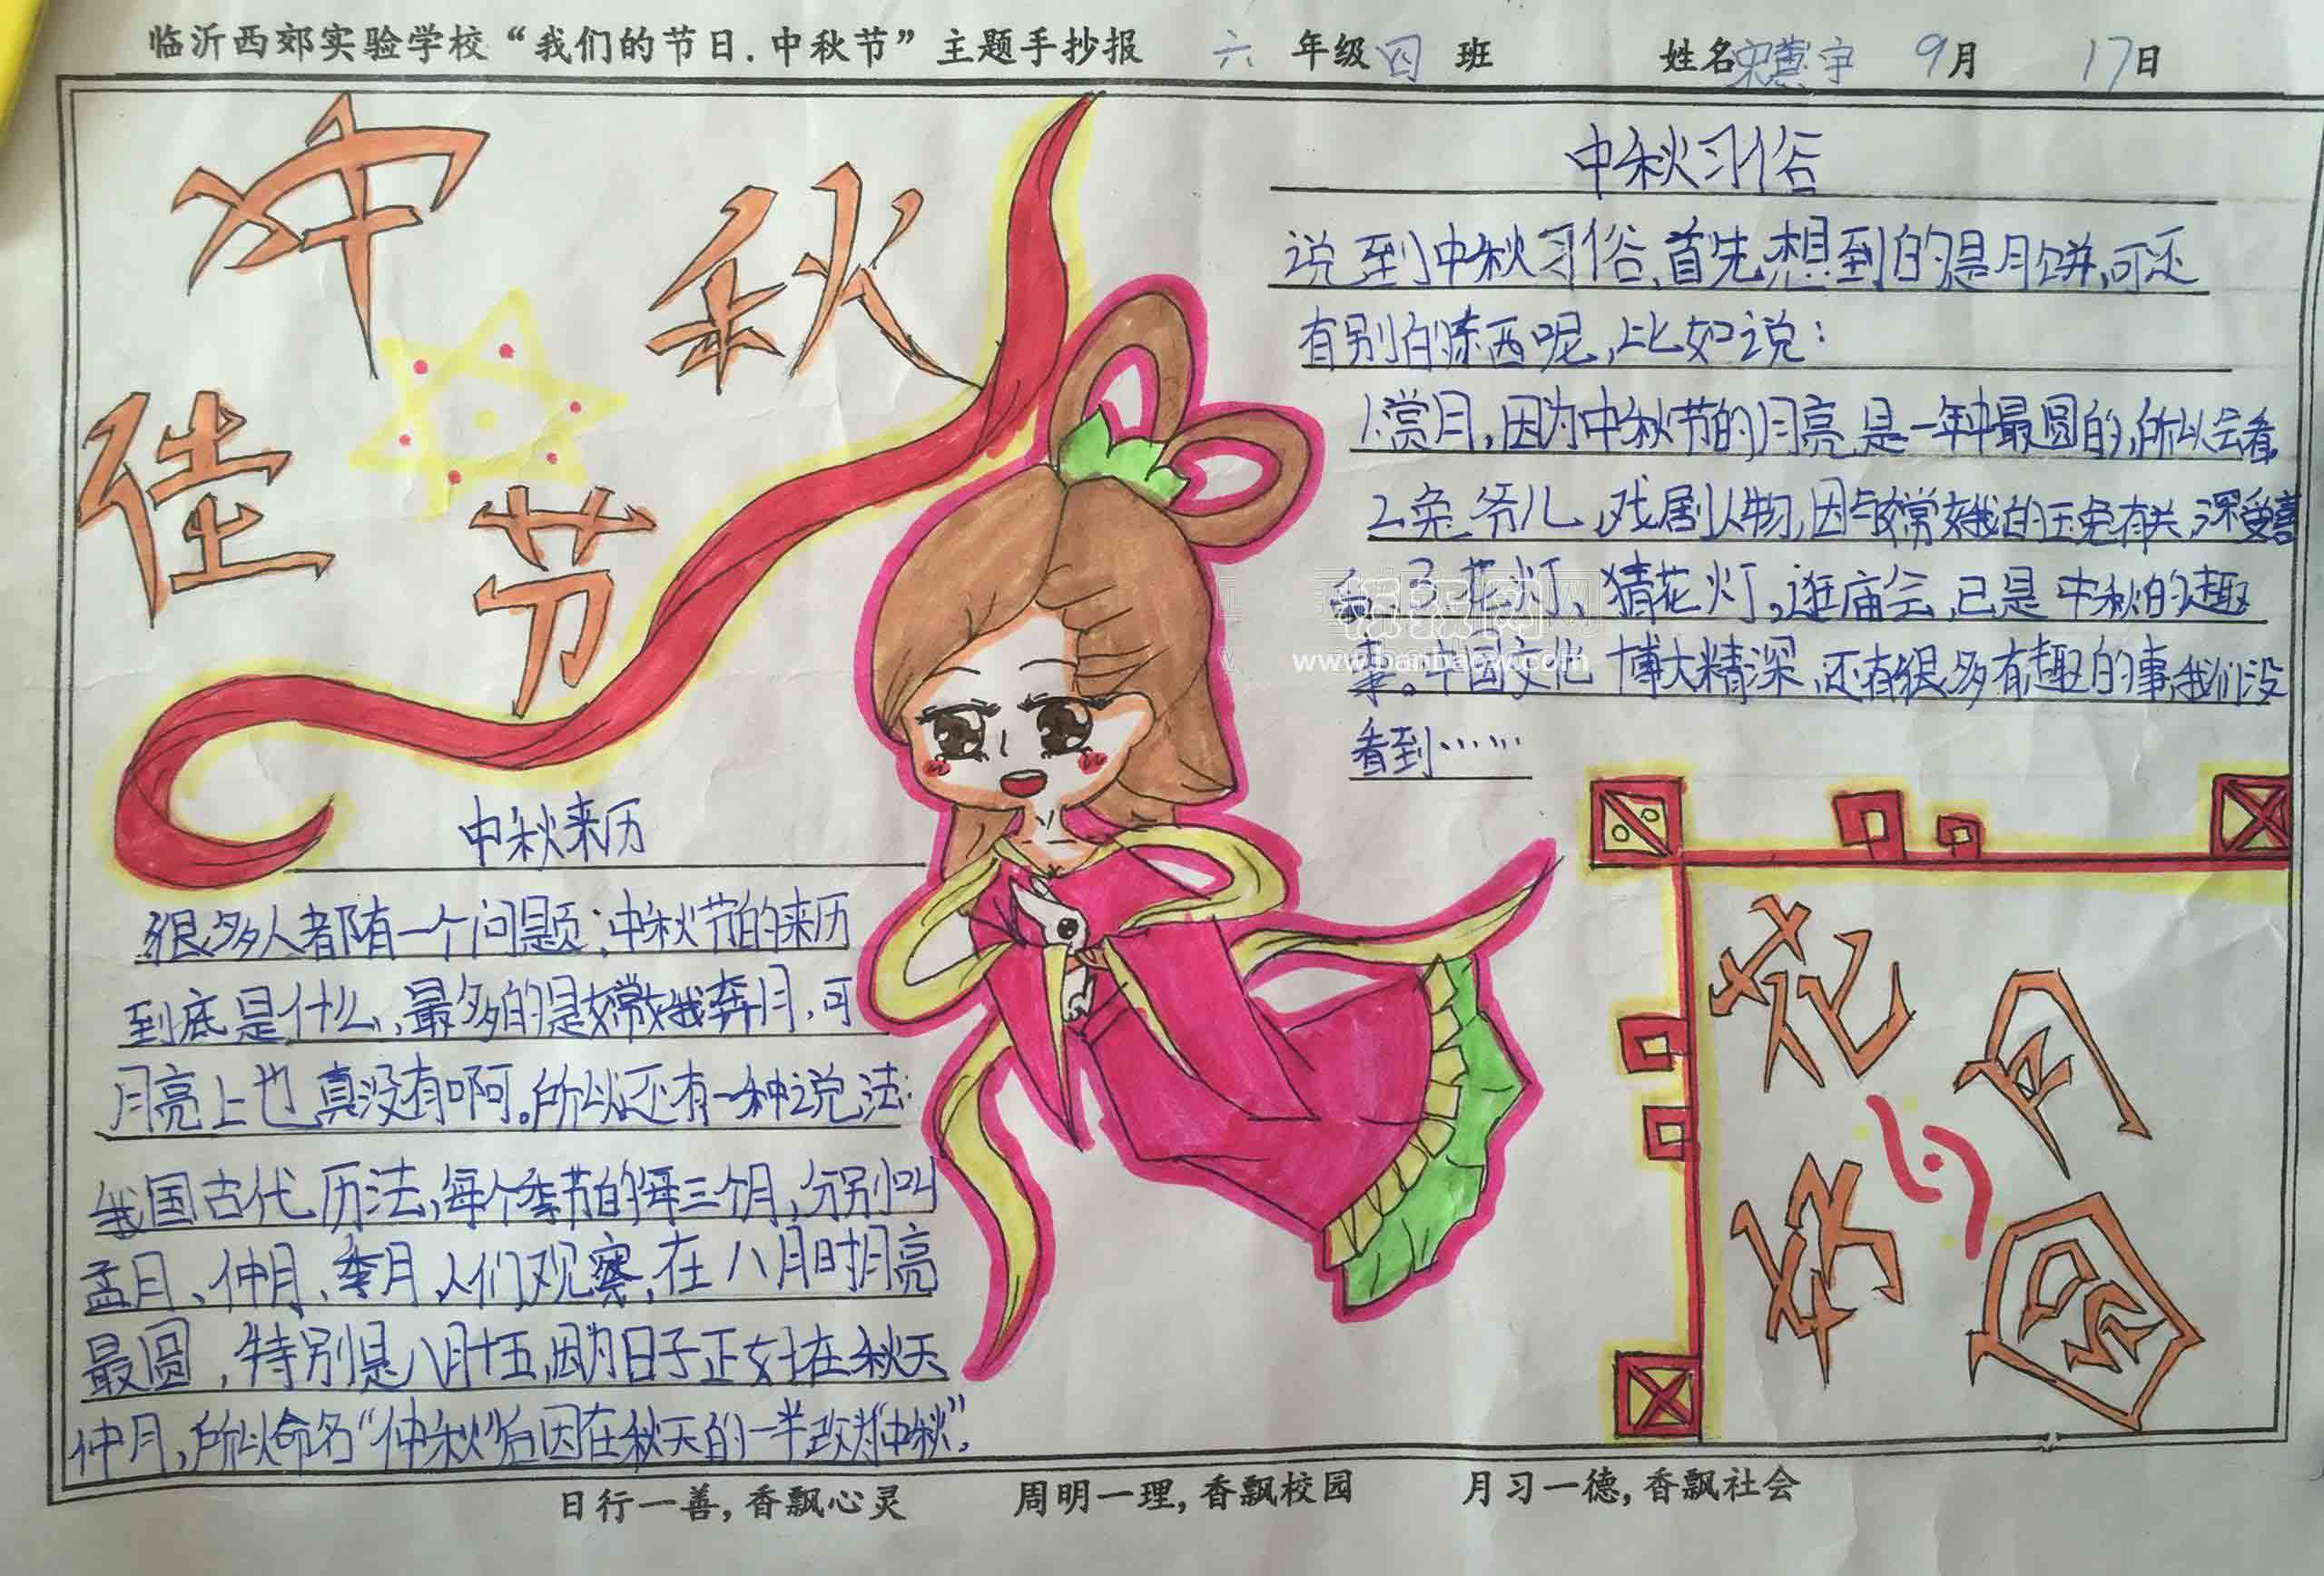 临沂西郊实验学校“我们的节日.中秋节”主题手抄报 六 年级 四 班 姓名 宋慧宇 9月 17日
中秋
佳节
中秋习俗
说到中秋习俗,首先想到的是月饼,可还
有别的东西呢,比如说:
1.赏月,因为中秋节的月亮是一年中最圆的,所以会看
2.兔爷儿,戏剧人物,因与嫦娥的玉兔有关,深受喜
3.花灯、猜花灯。逛庙会,已是中秋的趣
事。中国文化博大精深,还有很多有趣的事我们没
看到……
www.banbaow.com
中秋来历
很多人都有一个问题:中秋节的来历
到底是什么,最多的是嫦娥奔月,可
月亮上也真没有啊。所以还有一种说法:
我国古代历法,每个季节的每三个月,分别叫
孟月、仲月、季月,人们观察,在八月时月亮
最圆,特别是八月十五,因为日子正好在秋天
仲月,所以命名“仲秋”后因在秋天的一半改为“中秋”。
花好
月圆
日行一善,香飘心灵 周明一理,香飘校园 月习一德,香飘社会